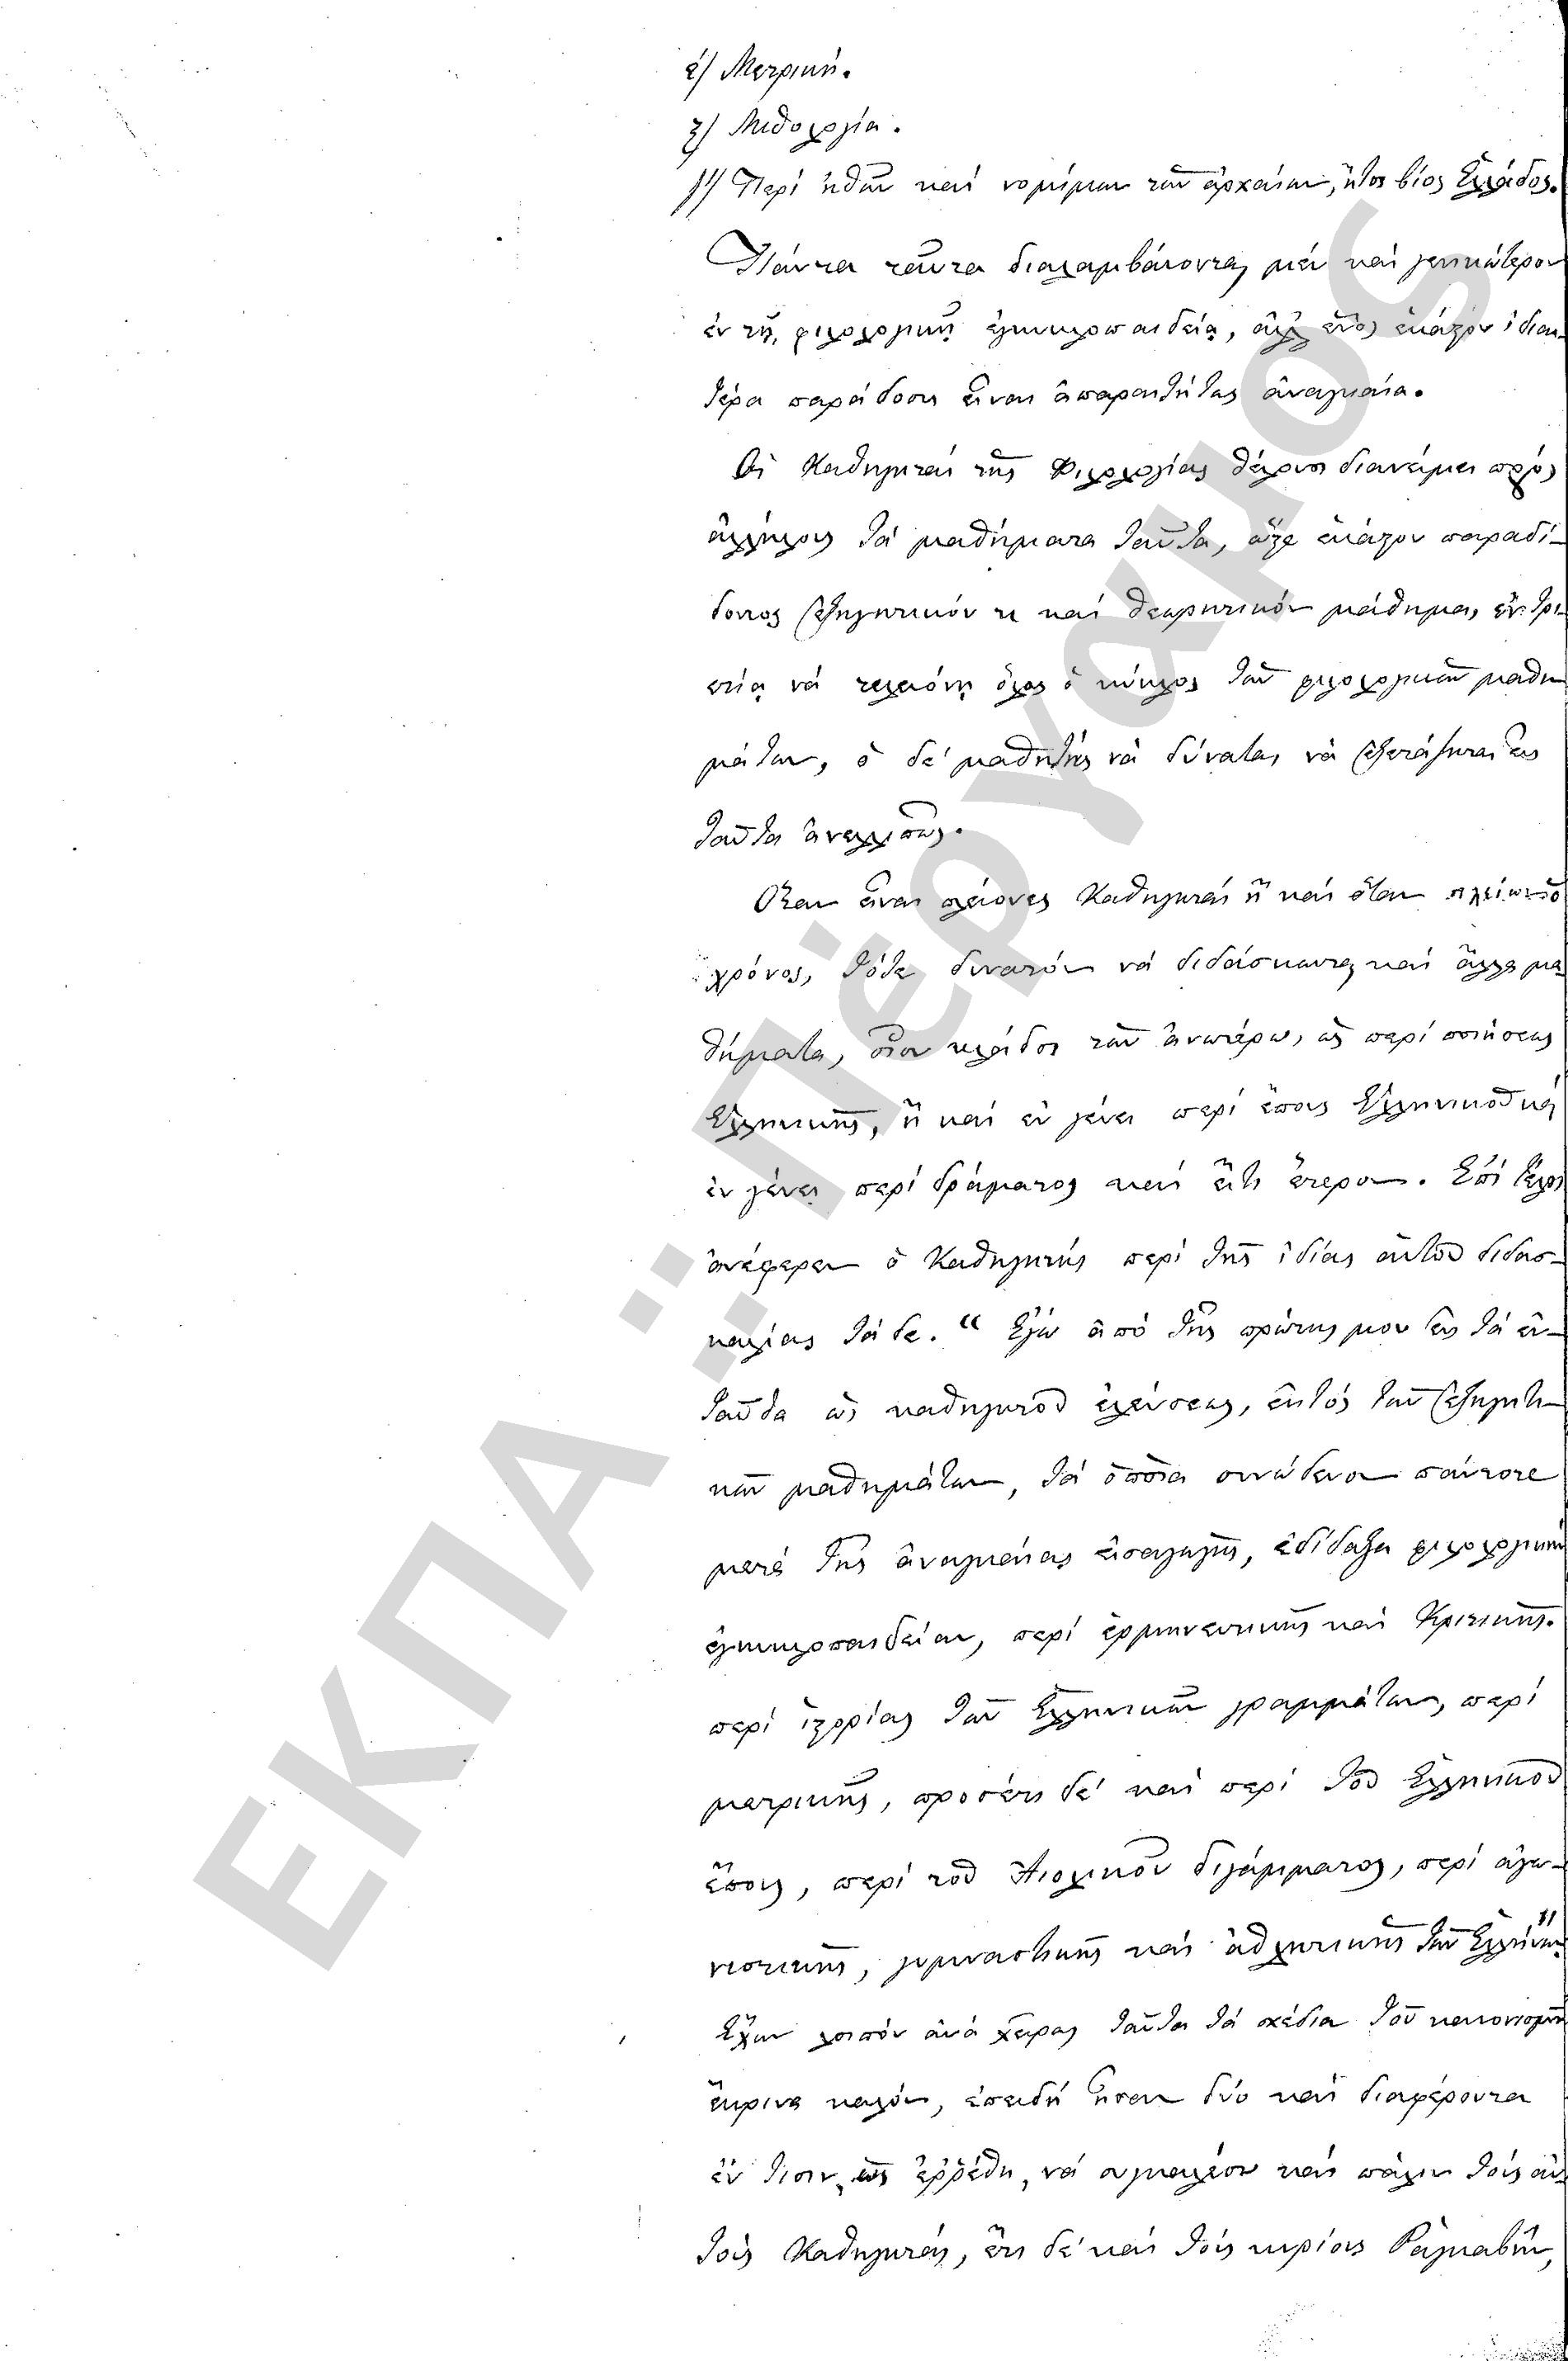 ε) Μετρική.
ζ) Μυθολογία.
η) Περὶ ἠθῶν καὶ νομίμων τῶν ἀρχαίων, ἤτοι βίος Ἑλλάδος.
Πάντα ταῦτα διαλαμβάνονται μὲν καὶ γενικώτερον
ἐν τῇ φιλολογικῇ ἐγκυκλοπαιδείᾳ, ἀλλ' ἑνὸς ἑκάστου ἰδιαι-
τέρα παράδοσις εἶναι ἀπαραιτήτως ἀναγκαία.
Οἱ Καθηγηταὶ τῆς Φιλολογίας θέλουσι διανείμει πρὸς
ἀλλήλους τὰ μαθήματα ταῦτα, ὥστε ἑκάστου παραδί-
δοντος ἐξηγητικόν τι καὶ θεωρητικὸν μάθημα, ἐν τρι-
ετίᾳ νὰ τελειόνῃ ὅλος ὁ κύκλος τῶν φιλολογικῶν μαθη-
μάτων, ὁ δὲ μαθητὴς νὰ δύναται νὰ ἐξετάζηται εἰς
ταῦτα ἀνελλιπῶς.
Ὅταν εἶναι πλείονες Καθηγηταὶ ἢ καὶ ὅταν πλείων ὁ
χρόνος, τότε δυνατὸν νὰ διδάσκωνται καὶ ἄλλα μα-
θήματα, οἷον κλάδοι τῶν ἀνωτέρω, ὡς περὶ ποιήσεως
Ἑλληνικῆς, ἢ καὶ ἐν γένει περὶ ἔπους Ἑλληνικοῦ καὶ
ἐν γένει περὶ δράματος καὶ εἴ τι ἕτερον. Ἐπὶ τέλους
ἀνέφερεν ὁ Καθηγητὴς περὶ τῆς ἰδίας αὐτοῦ διδασ-
καλίας τάδε. “ Ἐγὼ ἀπὸ τῆς πρώτης μου εἰς τὰ ἐν-
ταῦθα ὡς καθηγητοῦ ἐλεύσεως, ἐκτὸς τῶν ἐξηγητι-
κῶν μαθημάτων, τὰ ὁποῖα συνώδευον πάντοτε
μετὰ τῆς ἀναγκαίας εἰσαγωγῆς, ἐδίδαξα φιλολογικὴν
ἐγκυκλοπαιδείαν, περὶ ἑρμηνευτικῆς καὶ Κριτικῆς.
περὶ ἱστορίας τῶν Ἑλληνικῶν γραμμάτων, περὶ
μετρικῆς, προσέτι δὲ καὶ περὶ τοῦ Ἑλληνικοῦ
ἔπους, περὶ τοῦ Αἰολικοῦ διγάμματος, περὶ ἀγω-
νιστικῆς, γυμναστικῆς καὶ ἀθλητικῆς τῶν Ἑλλήνων”
Ἔχων λοιπὸν ἀνὰ χεῖρας ταῦτα τὰ σχέδια τοῦ κανονισμοῦ
ἔκρινα καλὸν, ἐπειδὴ ἦσαν δύο καὶ διαφέροντα
ἔν τισιν, ὡς ἐῤῥέθη, νὰ συγκαλέσω καὶ πάλιν τοὺς αὐ-
τοὺς Καθηγητὰς, ἔτι δὲ καὶ τοὺς κυρίους Ῥαγκαβῆν,
ΕΚΠΑ: Πέργαμος